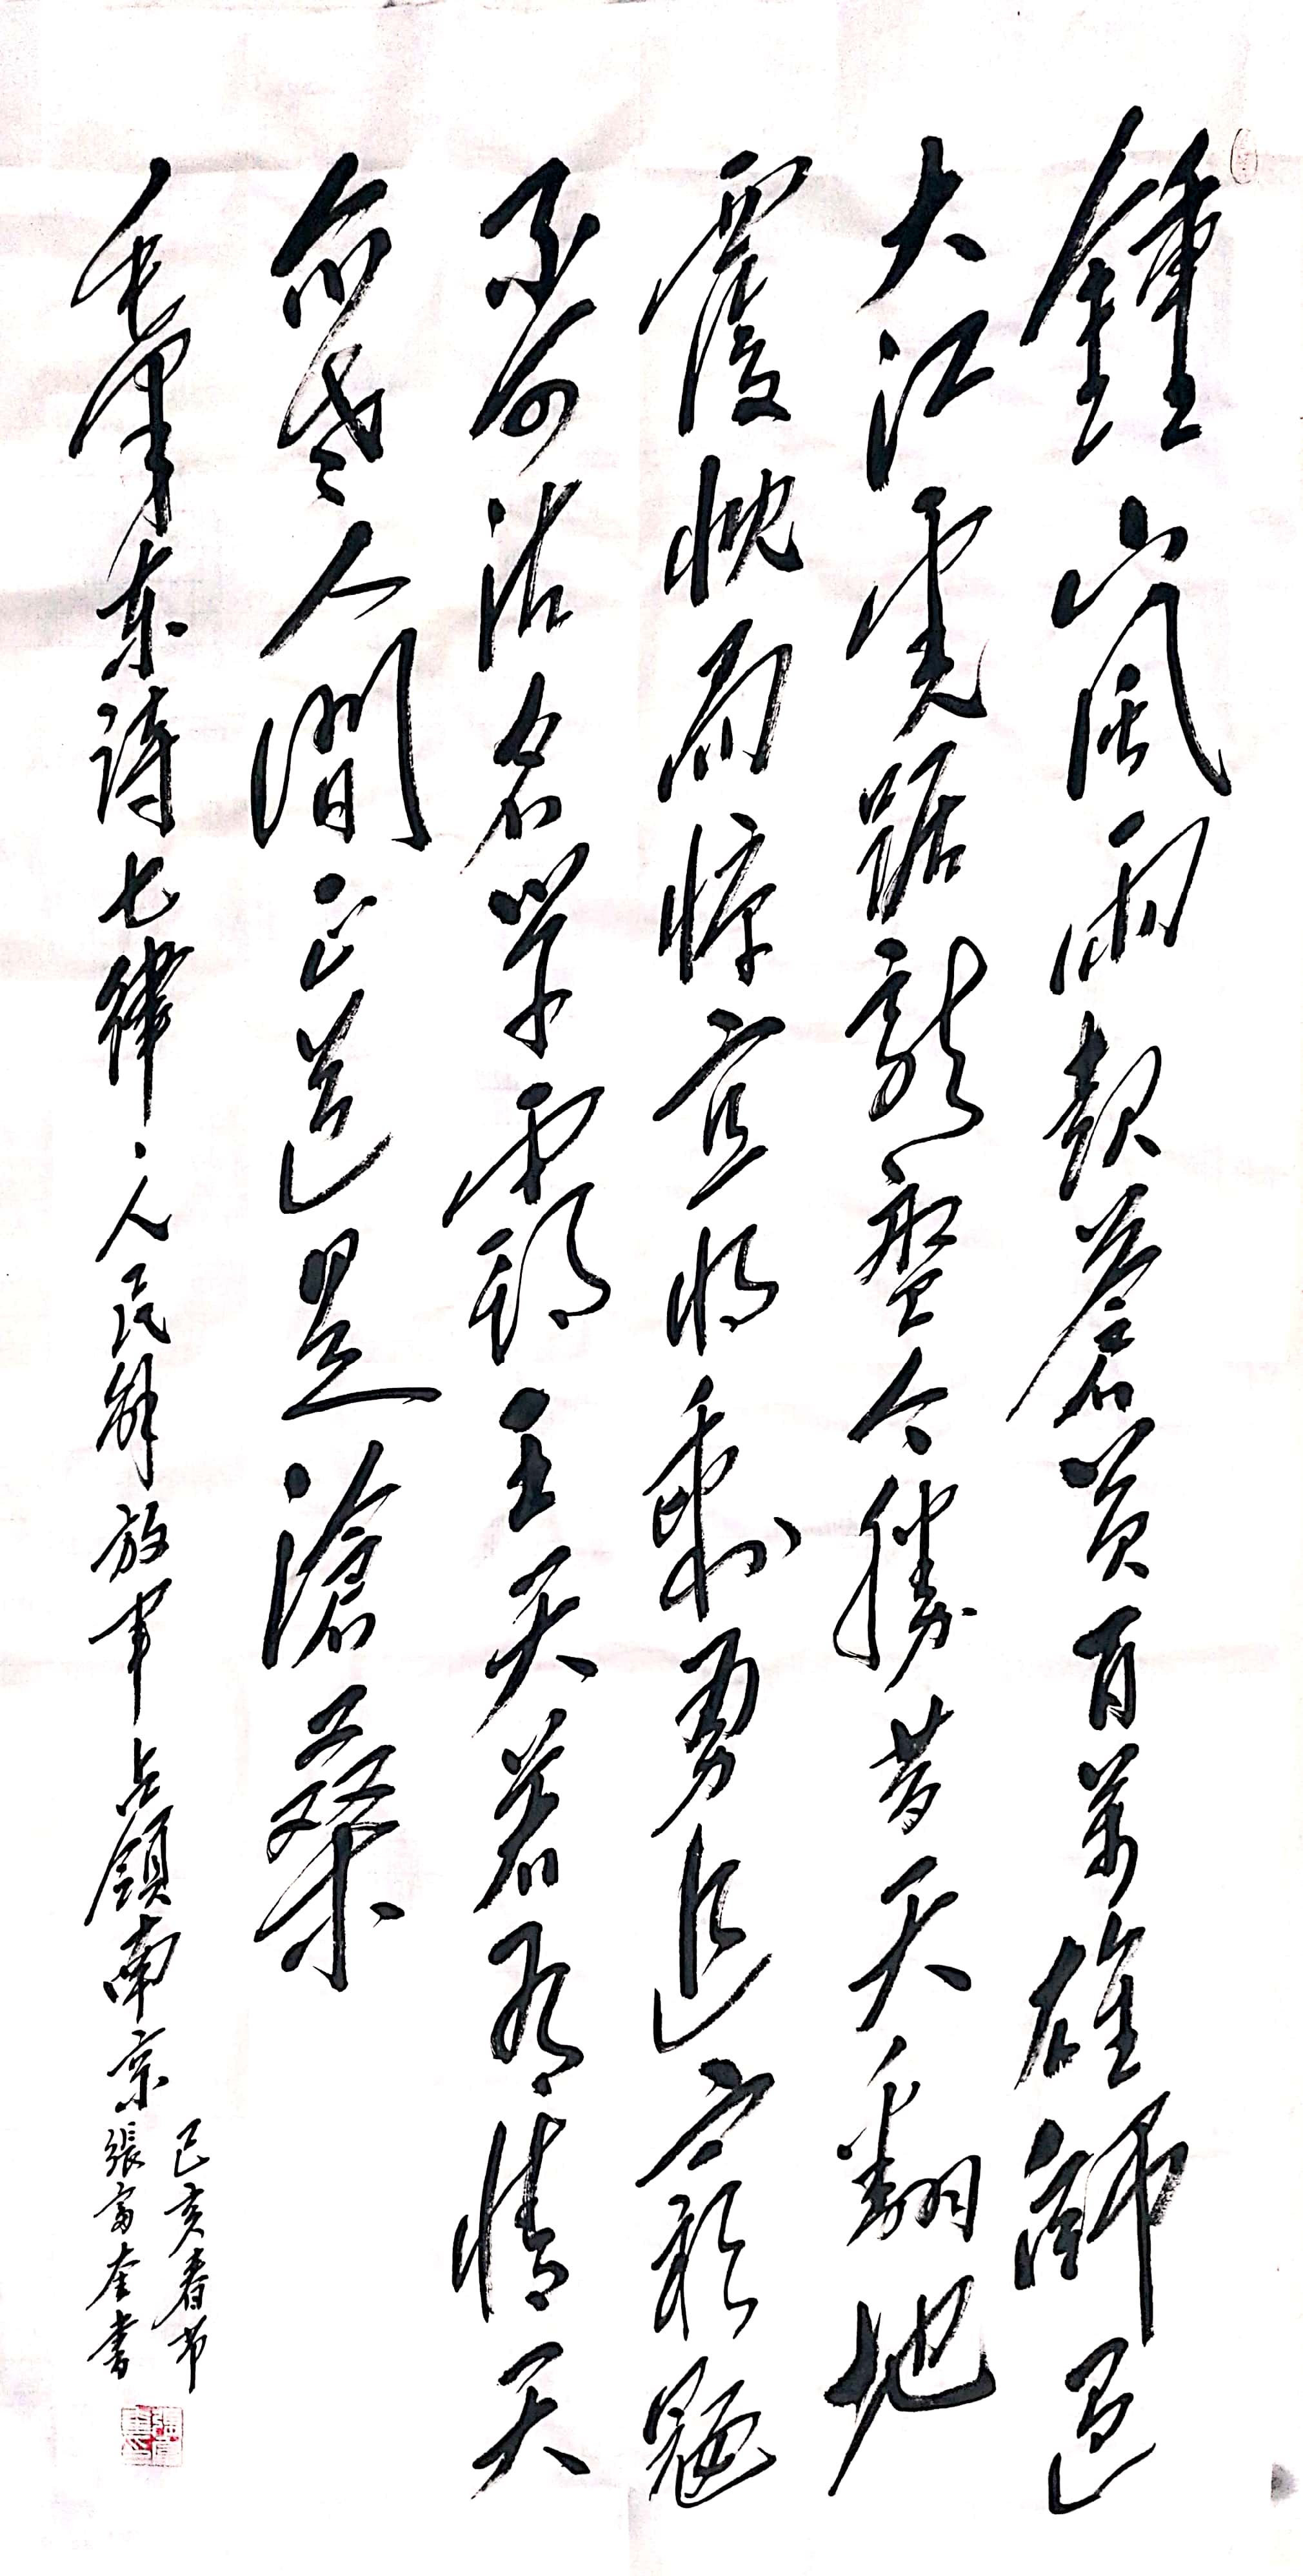 鍾山風雨起蒼黃百萬雄師過
大江虎踞龍盤今勝昔天翻地
覆慨而慷宜將剩勇追窮寇
不可沽名學霸王天若有情天
亦老人間正道是滄桑
毛澤东詩七律人民解放军占領南京
己亥春节
張富奎書